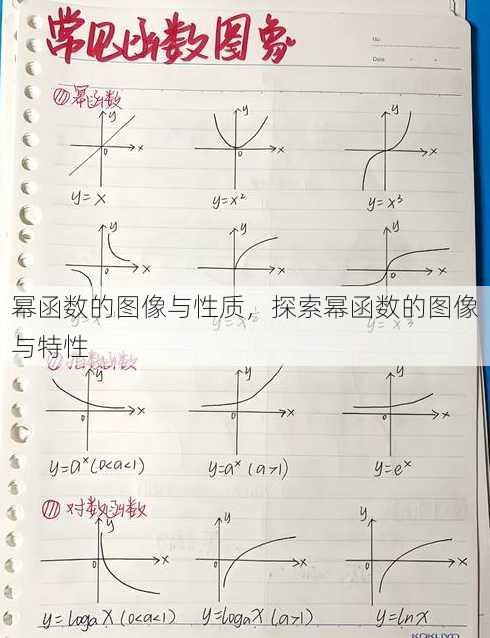 常见函数图象
No.
Date
(1) 幂函数
y y y
0 x 0 x 0 x
y=x y=x² y=x³
y y y
0 x 0 x 0 x
幂函数的图像与性质，探索幂函数的图像
与特性
y y y
0 x 0 x 0 x
y=aˣ (0<a<1) y=aˣ (a>1) y=eˣ
(11) 对数函数
y y y
0 x 0 x 0 x
y=logaX (0<a<1) y=logaX (a>1) y=lnx
KOKUYO